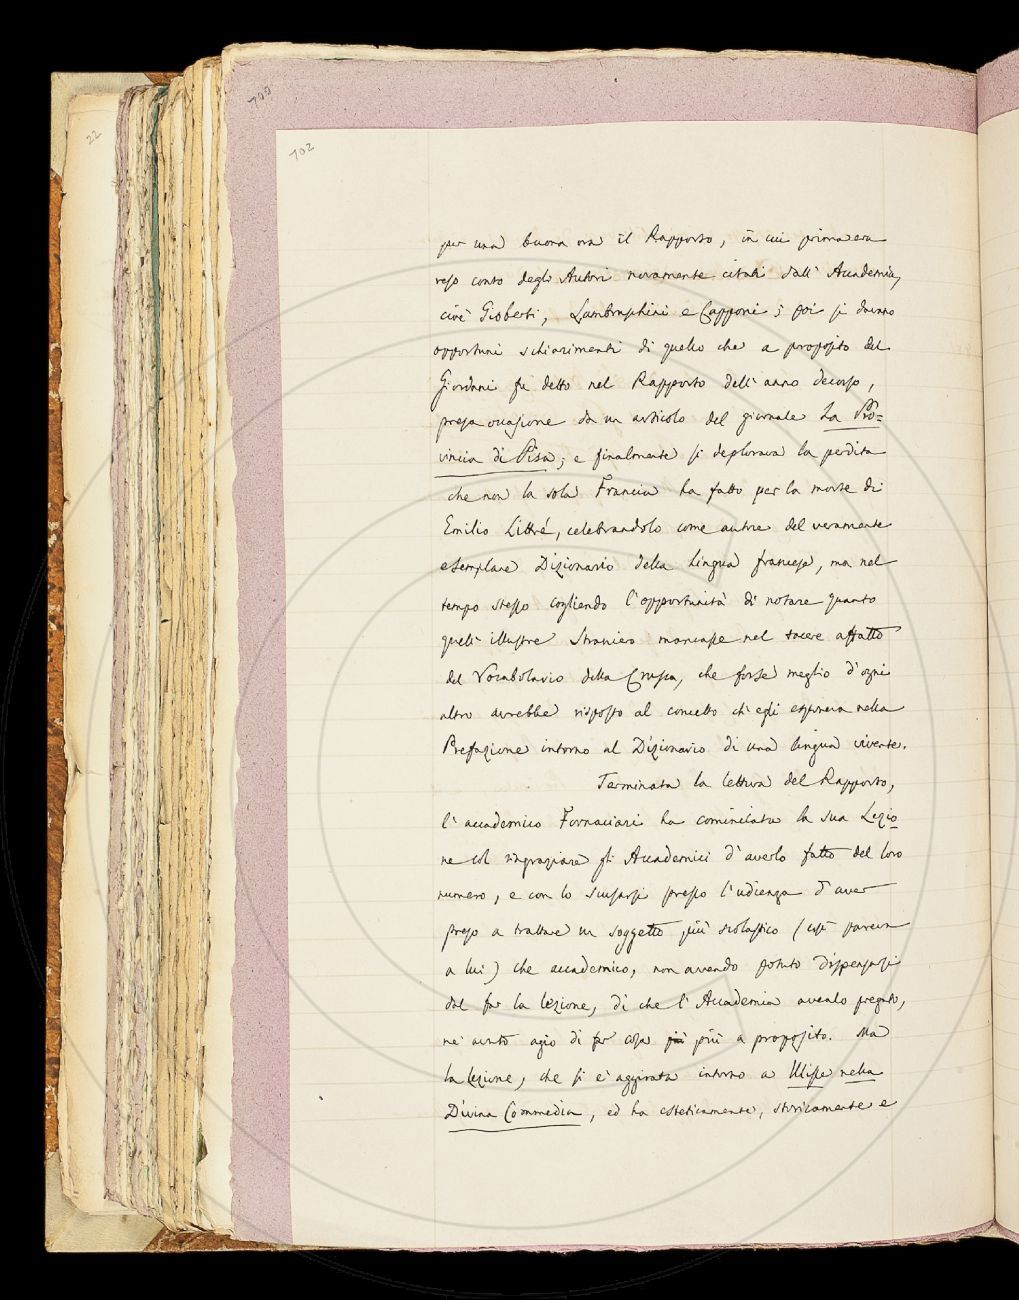 22
702
per una buona ora il Rapporto, in cui prima era
reso conto degli Autori novamente citati dall' Accademia,
cioè Gioberti, Lambruschini e Capponi; poi si davano
opportuni schiarimenti di quello che a proposito del
Giordani fu detto nel Rapporto dell' anno decorso,
presa occasione da un articolo del giornale La Pro=
vincia di Pisa; e finalmente si deplorava la perdita
che non la sola Francia ha fatto per la morte di
Emilio Littré, celebrandolo come autore del veramente
esemplare Dizionario della Lingua francese, ma nel
tempo stesso cogliendo l'opportunità di notare quanto
quell' illustre straniero mancasse nel tacere affatto
del Vocabolario della Crusca, che forse meglio d'ogni
altro avrebbe risposto al concetto ch'egli esponeva nella
Prefazione intorno al Dizionario di una lingua vivente.
Terminata la lettura del Rapporto,
l' accademico Fornaciari ha cominciata la sua Lezio=
ne col ringraziare gli Accademici d'averlo fatto del loro
numero, e con lo scusarsi presso l'udienza d'aver
preso a trattare un soggetto più scolastico (così pareva
a lui) che accademico, non avendo potuto dispensarsi
dal far la lezione, di che l'Accademia avealo pregato,
nè avuto agio di far cosa più a proposito. Ma
la lezione, che si è aggirata intorno a Ulisse nella
Divina Commedia, ed ha esteticamente, storicamente e